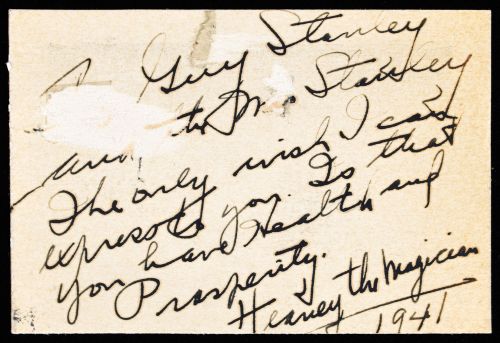 To Guy Stanley
and to Mrs Stanley
The only wish I can
express to you. Is that
you have Health and
Prosperity.
Heaney the Magician
1941